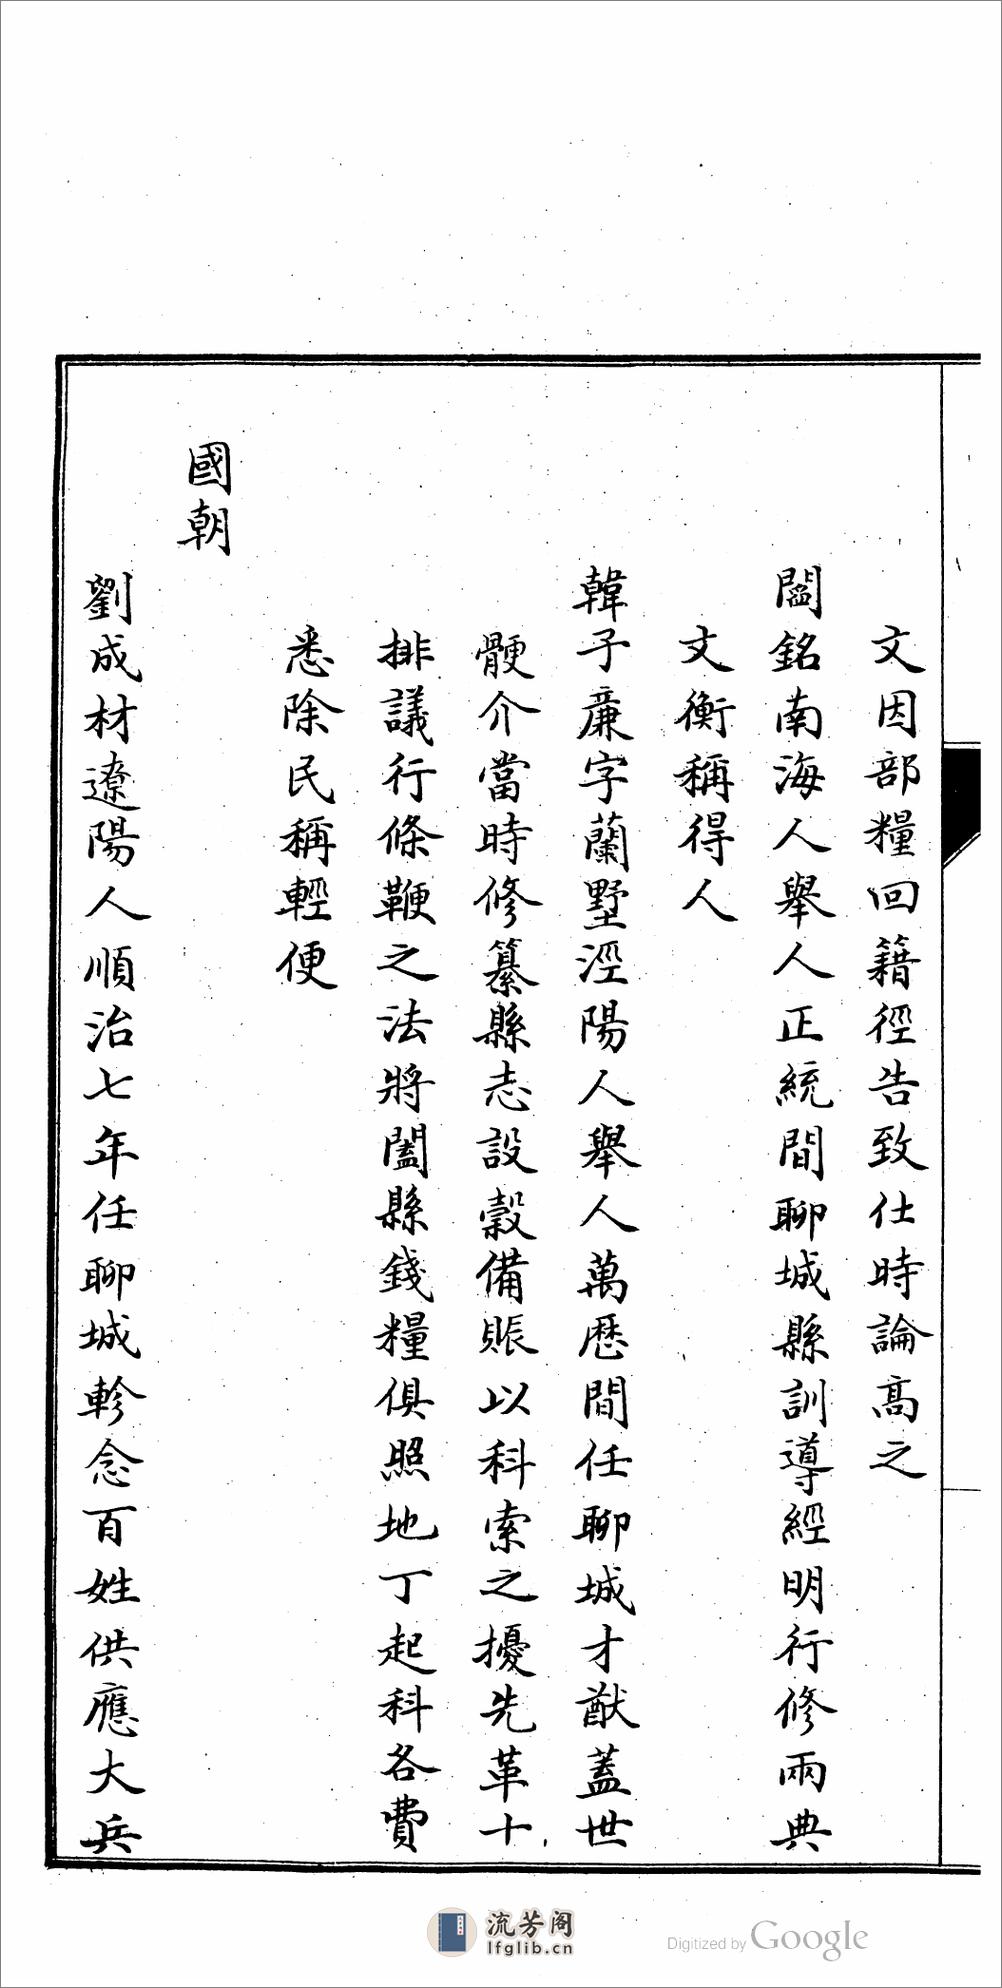 文因部糧回籍徑告致仕時論高之
闔銘南海人舉人正統間聊城縣訓導經明行修兩典
文衡稱得人
韓子亷字蘭墅涇陽人舉人萬歷間任聊城才猷蓋世
骾介當時修纂縣志設穀備賑以科索之擾先革十
排議行條鞭之法將闔縣錢糧俱照地丁起科各費
悉除民稱輕便
國朝
劉成材遼陽人順治七年任聊城軫念百姓供應大兵
流芳阁
lfglib.cn
Digitized by Google